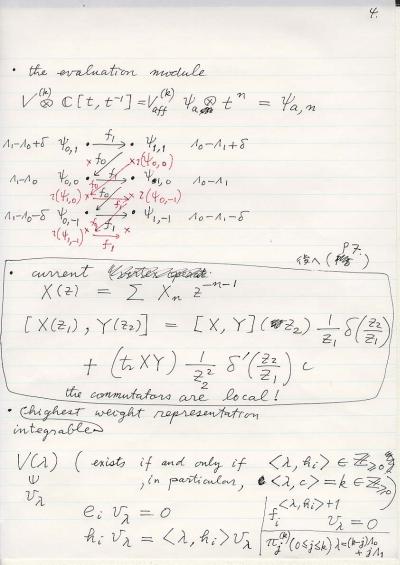 4.
• the evaluation module
V^{(k)} ⊗ ℂ[t, t^{-1}] = V^{(k)}_{aff} ψ_a ⊗ t^n = ψ_{a,n}
Λ1-Λ0+δ ψ_{0,1} • f_1 → • ψ_{1,1} Λ0-Λ1+δ
× f_0 × 2(ψ_{0,0})
Λ1-Λ0 ψ_{0,0} • f_1 → • ψ_{1,0} Λ0-Λ1
2(ψ_{1,0}) × f_0 × 2(ψ_{0,-1})
Λ1-Λ0-δ ψ_{0,-1} • f_1 → • ψ_{1,-1} Λ0-Λ1-δ
2(ψ_{1,-1}) × f_1 ×
P7.
• current
X(z) = Σ X_n z^{-n-1}
[X(z_1), Y(z_2)] = [X, Y](z_2) 1/z_1 δ(z_2/z_1)
+ (tr XY) 1/z_2^2 δ'(z_2/z_1) c
the commutators are local!
• highest weight representation
integrable
V(λ) (exists if and only if <λ, h_i> ∈ ℤ_{≥0}
Ψ , in particular, <λ, c> = k ∈ ℤ_{≥0})
v_λ
e_i v_λ = 0 f_i^{<λ,h_i>+1} v_λ = 0
h_i v_λ = <λ, h_i> v_λ π_j^{(k)} (0≤j≤k) λ=(k-j)Λ0 + jΛ1